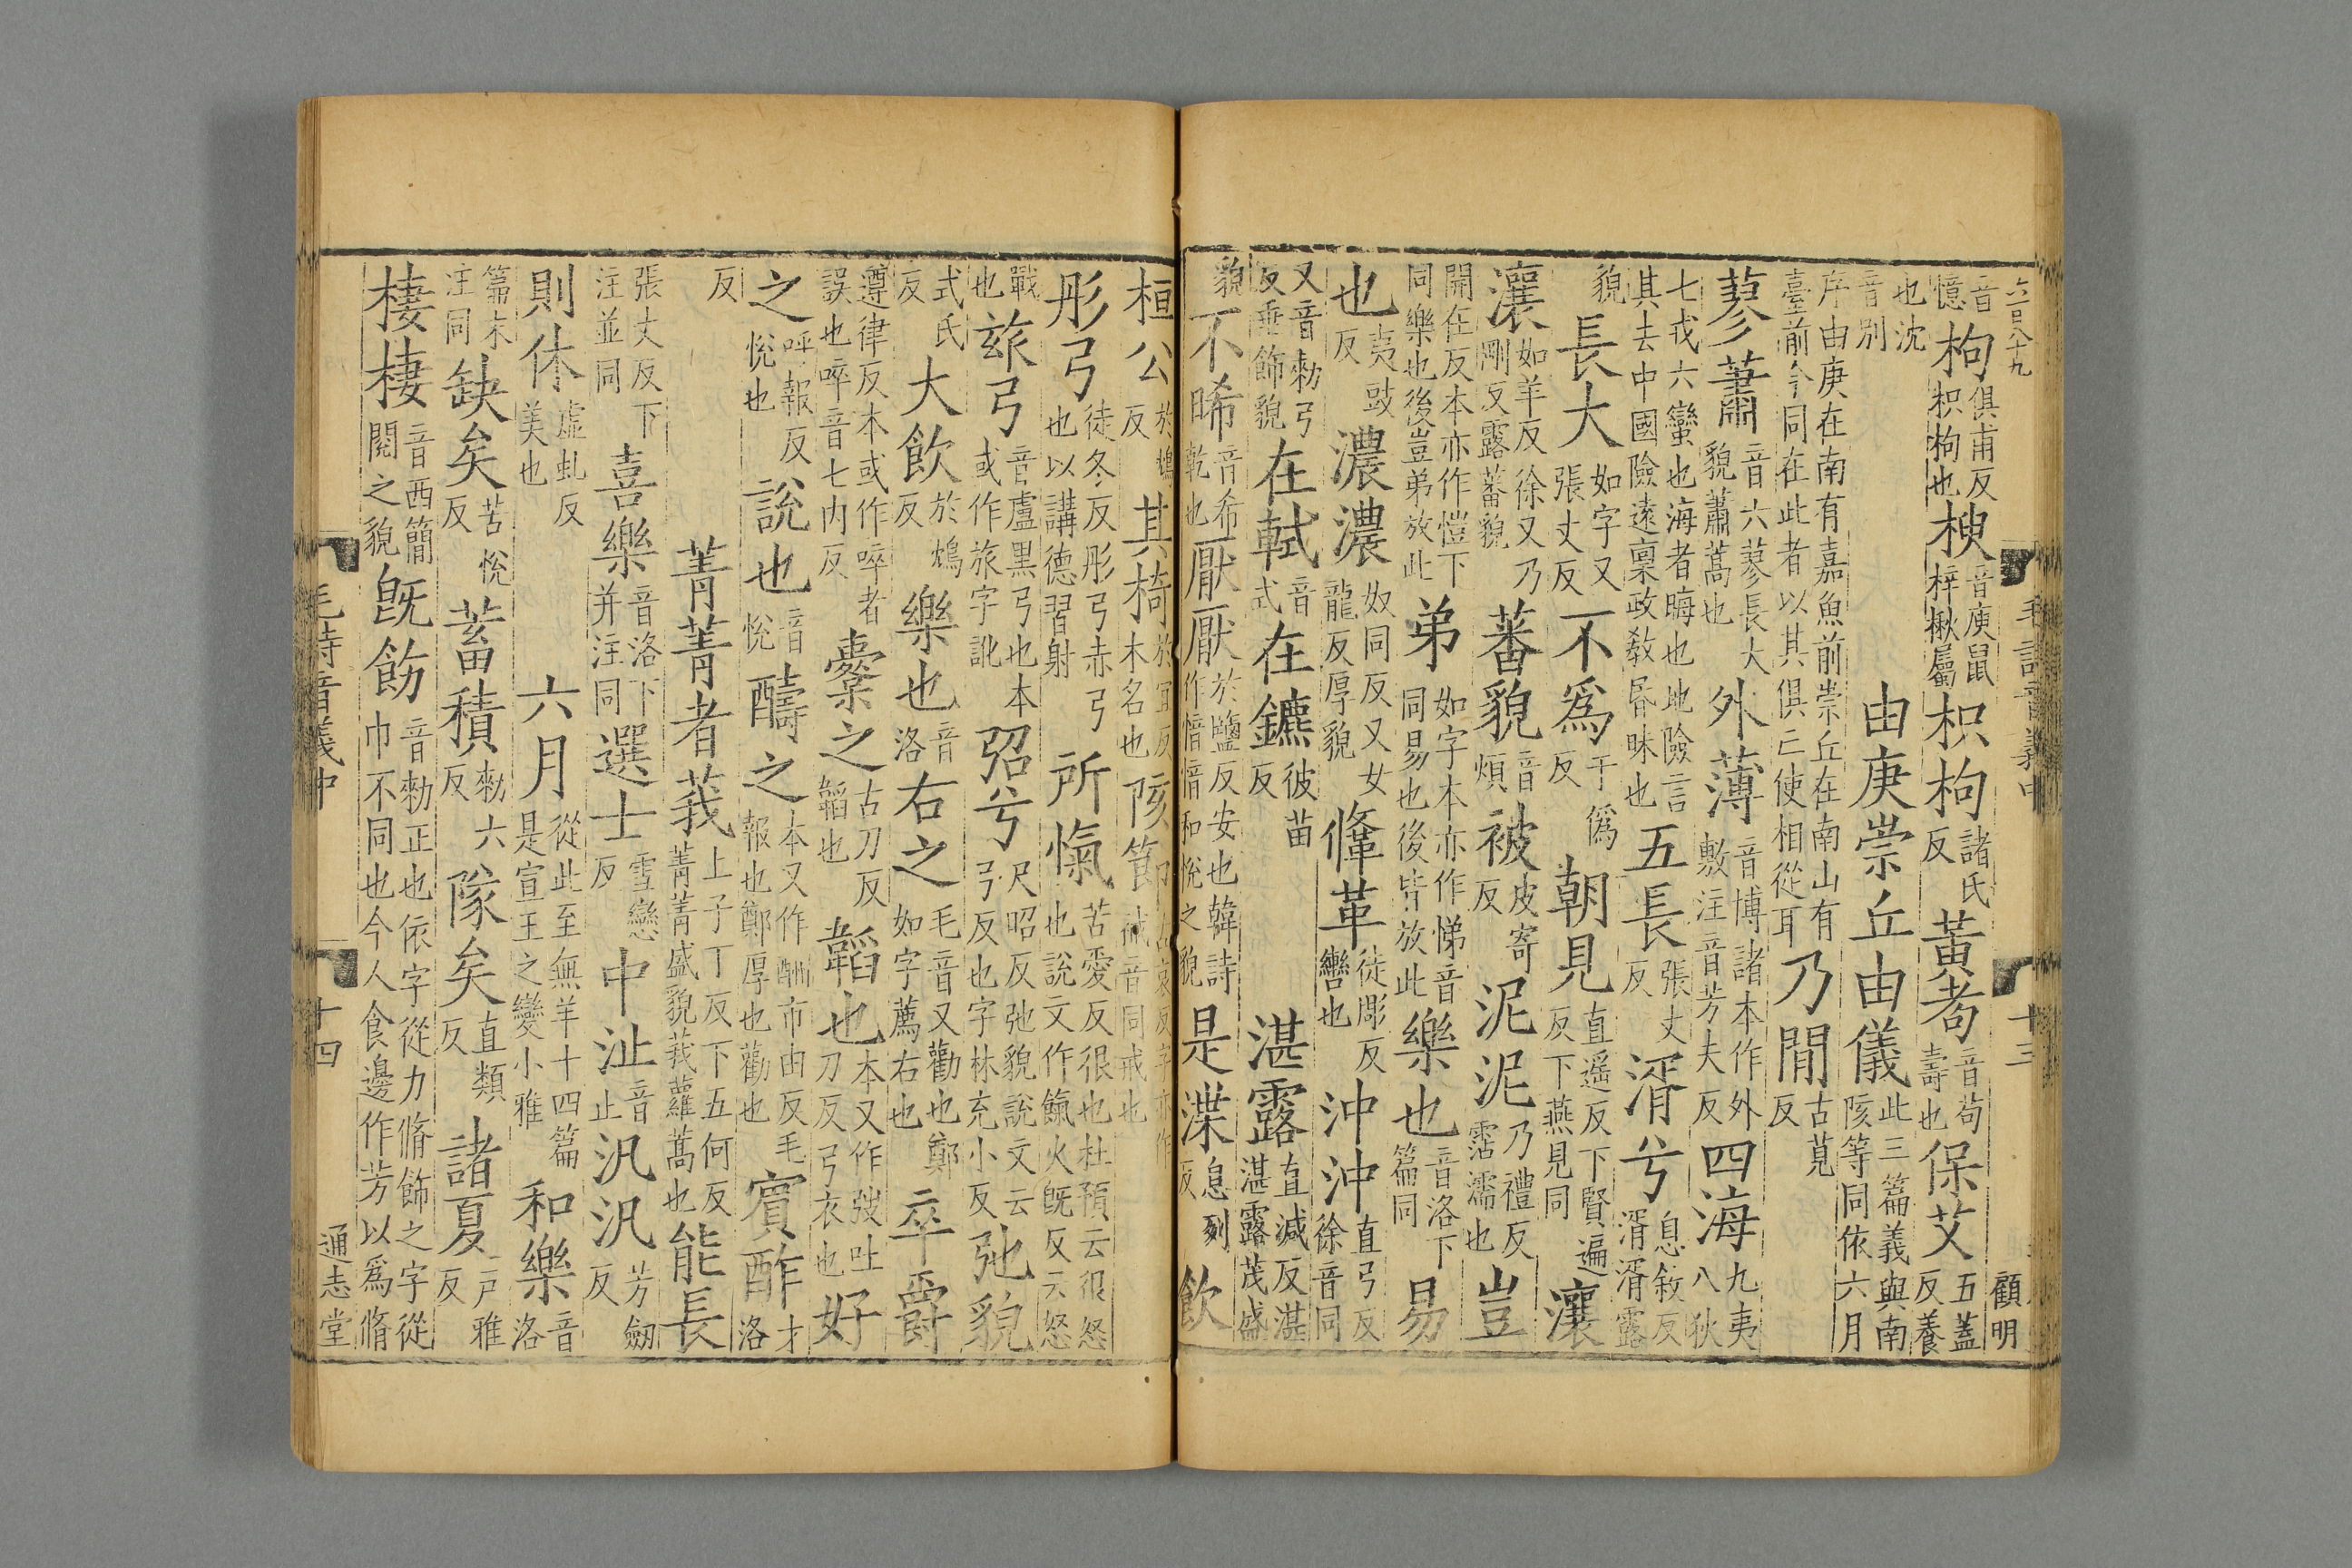 六百八十九 毛詩音義中 十三 顧明
音憶枸俱甫反枳枸也楰音庾鼠梓楸屬枳枸諸氏反黃耇音苟壽也保艾五蓋反養
也沈音別 由庚崇丘由儀此三篇義與南陔等同依六月
序由庚在南有嘉魚前崇丘在南山有臺前今同在此者以其俱亡使相從耳乃閒古莧反
蓼蕭音六蓼長大貌蕭蒿也外薄音博諸本作外敷注音芳夫反四海九夷八狄
七戎六蠻也海者晦也地險言其去中國險遠稟政教昏昧也五長張丈反湑兮息敘反湑湑露
貌長大如字又張丈反不爲于僞反朝見直遥反下賢遍反下燕見同瀼
瀼如羊反徐又乃剛反露蕃貌蕃貌音煩被皮寄反泥泥乃禮反霑濡也豈
開在反本亦作愷下同樂也後豈弟放此弟如字本亦作悌音同易也後皆放此樂也音洛下篇同易
也夷豉反濃濃奴同反又女龍反厚貌鞗革徒彫反轡也沖沖直弓反徐音同
又音勑弓反垂飾貌在軾音式在鑣彼苗反 湛露直減反湛湛露茂盛
貌不晞音希乾也厭厭於鹽反安也韓詩作愔愔和悅之貌是渫息列反飲
桓公於鴆反其椅於宜反木名也陔節古哀反字亦作祴音同戒也
彤弓徒冬反彤弓赤弓也以講德習射所愾苦愛反很也杜預云很怒也說文作鎎火既反云怒
戰也玈弓音盧黑弓也本或作旅字訛弨兮尺昭反弛貌說文云弓反也字林充小反弛貌
式氏反大飲於鴆反樂也音洛右之毛音又勸也鄭如字薦右也卒爵
遵律反本或作啐者誤也啐音七內反櫜之古刀反韜也韜也本又作弢吐刀反弓衣也好
之呼報反悅也說也音悅醻之本又作酬市由反毛報也鄭厚也勸也賓酢才洛
反 菁菁者莪上子丁反下五何反菁菁盛貌莪蘿蒿也能長
張丈反下注並同喜樂音洛下并注同選士雪戀反中沚音止汎汎芳劒反
則休虛虬反美也 六月從此至無羊十四篇是宣王之變小雅和樂音洛
篇末注同缺矣苦悅反蓄積勑六反隊矣直類反諸夏戶雅反
棲棲音西簡閱之貌既飭音勑正也依字從力脩飾之字從巾不同也今人食邊作芳以爲脩
毛詩音義中 十四 通志堂